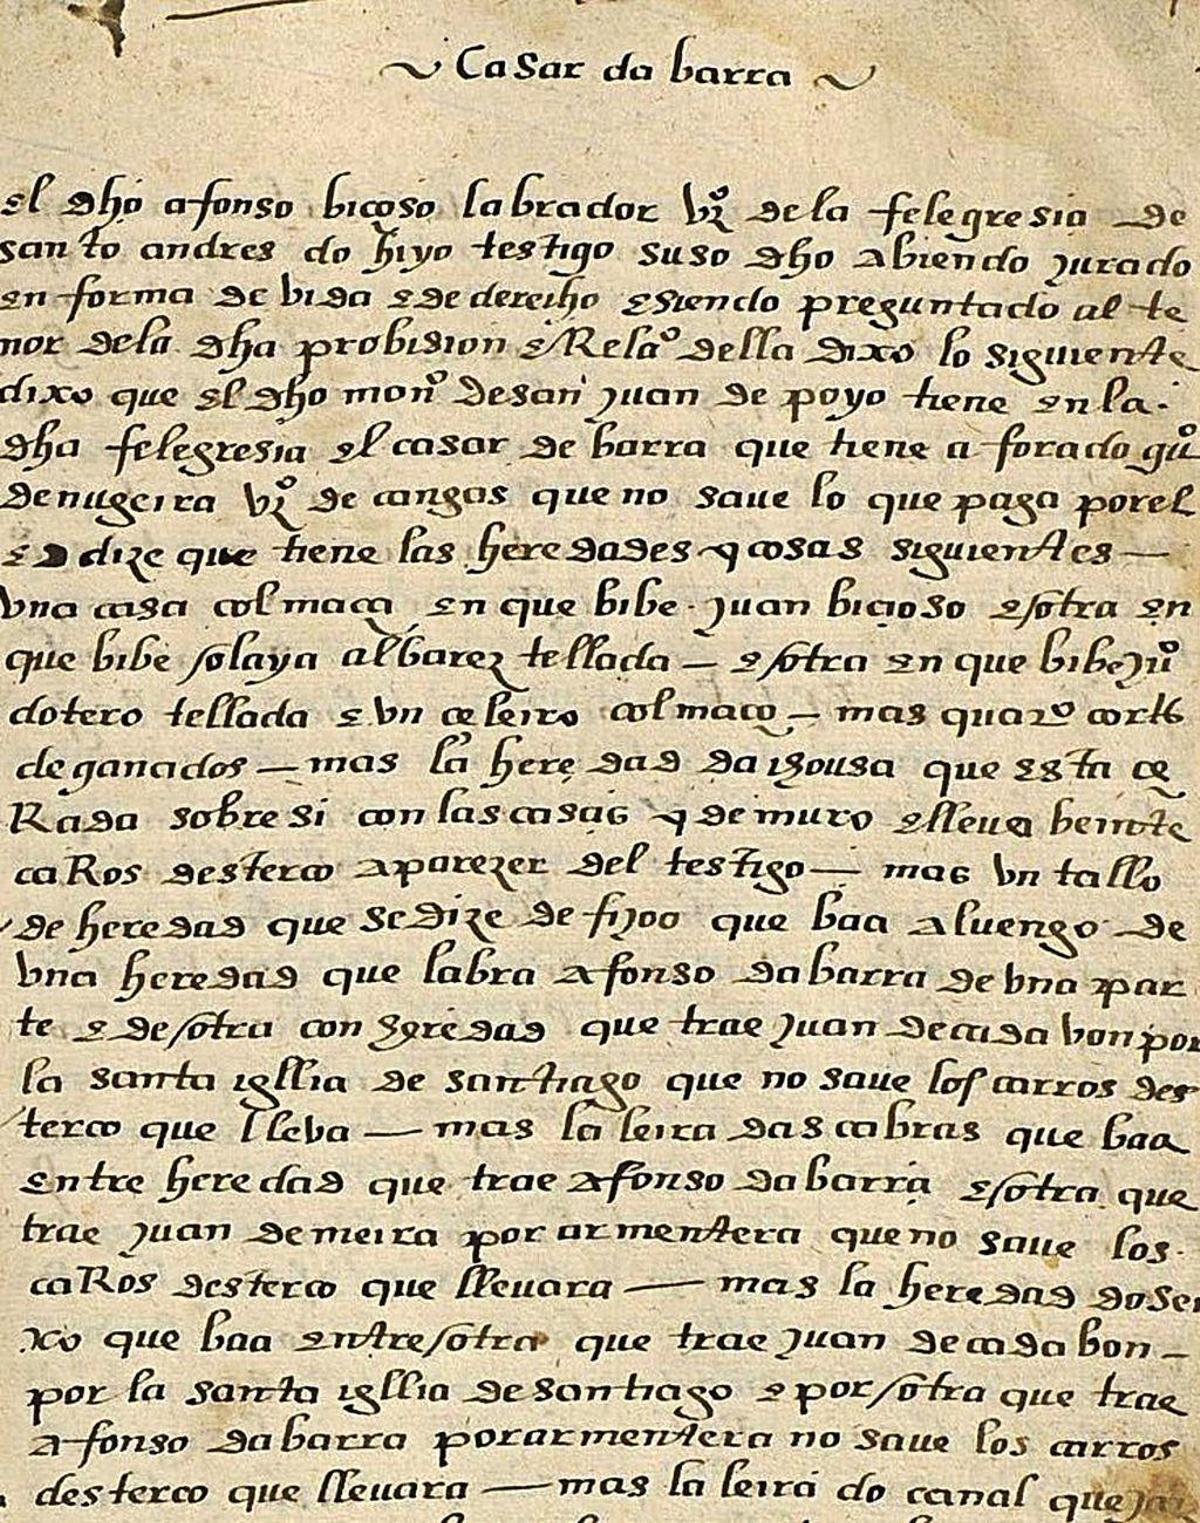 ~ Casar da barra ~
el dho afonso biçoso labrador vzº dela felegresia de
santo andres do hiyo testigo suso dho abiendo jurado
en forma de vida e de derecho e siendo preguntado al te
nor dela dha probision e Relaº della dixo lo siguiente
dixo que el dho monº de san juan de poyo tiene en la
dha felegresia el casar de barra que tiene aforado guº
de nugeira vzº de cangas que no saue lo que paga porel
e dize que tiene las heredades y cosas siguientes —
vna casa colmaça en que bibe juan biçioso e sotra en
que bibe solaya albarez tellada — e sotra en que bibe juº
dotero tellada e vn çeleiro colmaço — mas quatº cortes
de ganados — mas la heredad da igousa que esta çe
Rada sobre si con las casas y de muro e lleua beinte
caRos desterco a parezer del testigo — mas vn tallo
de heredad que se dize de fijoo que baa a luengo de
vna heredad que labra afonso da barra de vna par
te e de sotra con heredad que trae juan de cadabon por
la santa igllia de santiago que no saue los carros des
terco que lleba — mas la leira das cabras que baa
entre heredad que trae afonso da barra e sotra que
trae juan de meira por armentera que no saue los
caRos desterco que lleuara — mas la heredad do sei
xo que baa entre sotra que trae juan de cadabon —
por la santa igllia de santiago e por sotra que trae
afonso da barra por armentera no saue los carros
desterco que lleuara — mas la leira do canal que